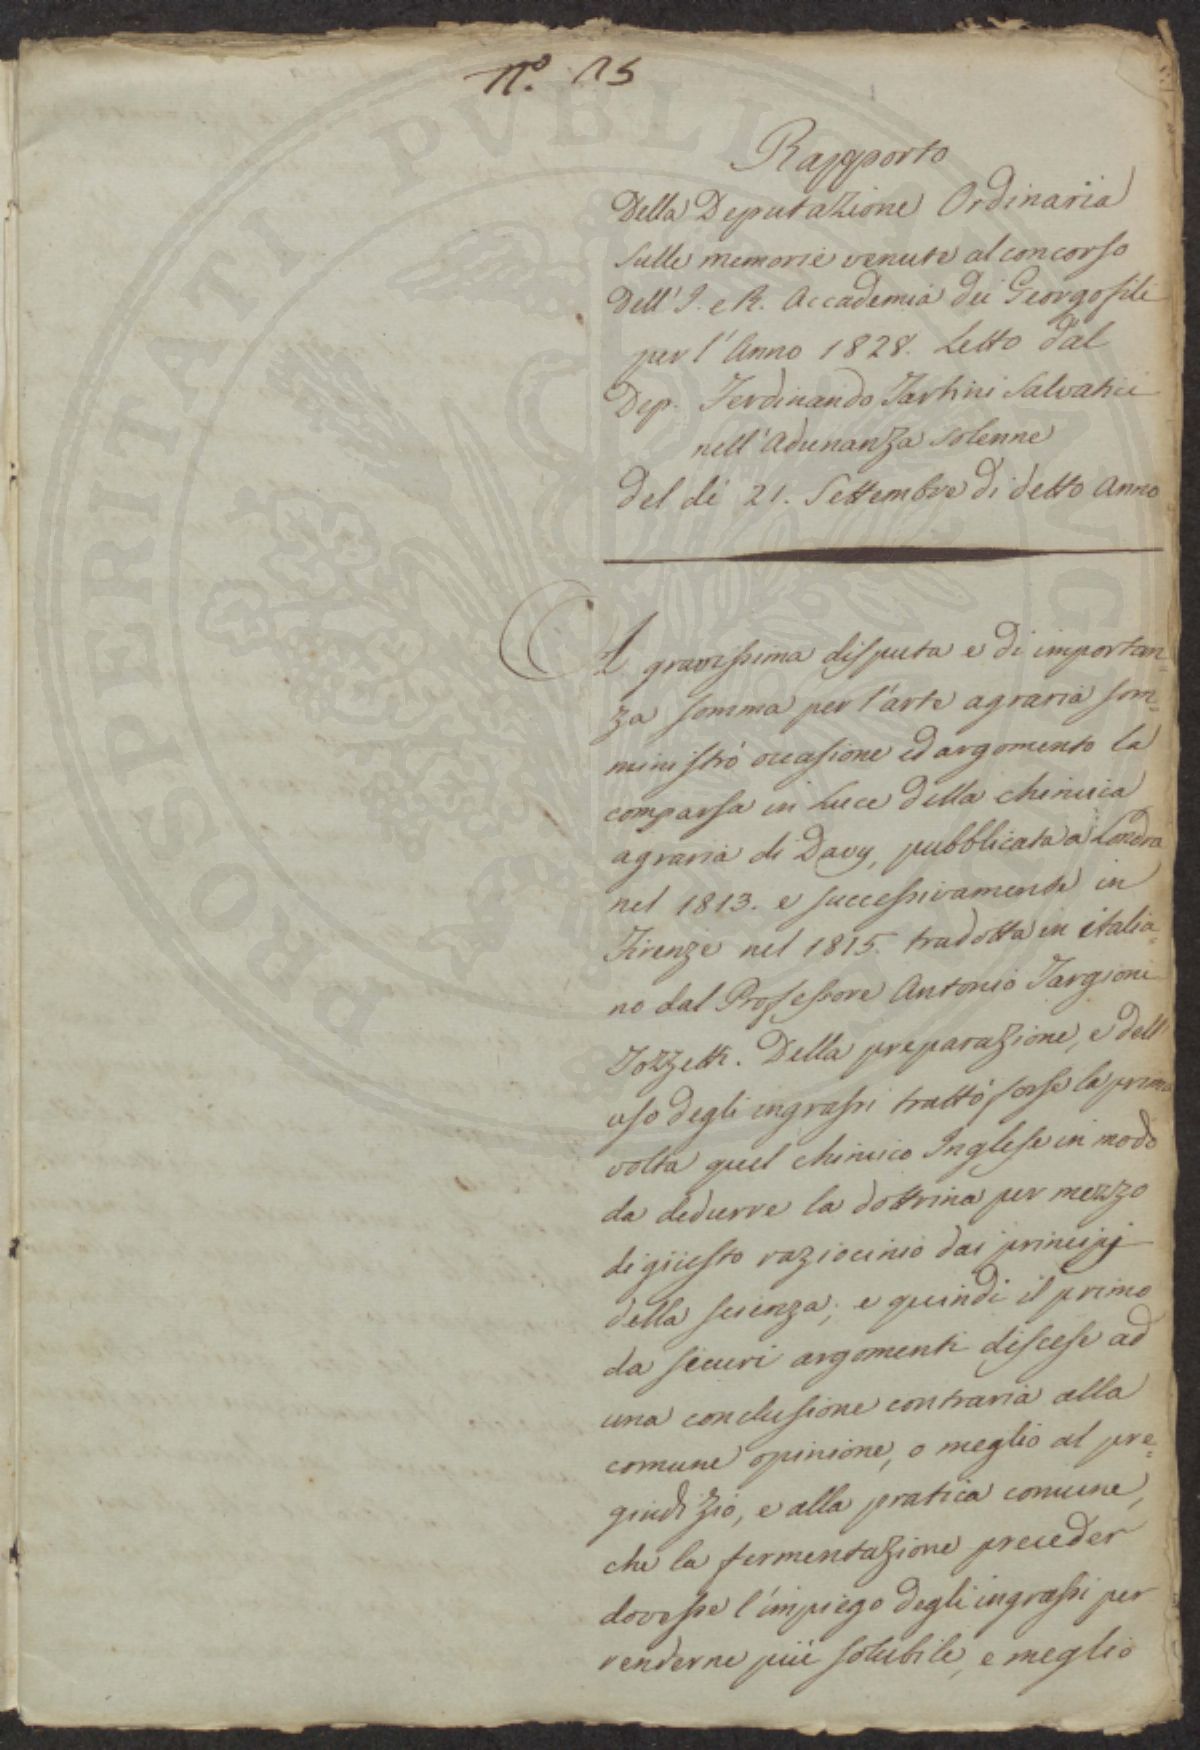 N.º 15
Rapporto
Della Deputazione Ordinaria
sulle memorie venute al concorso
Dell'I. e R. Accademia dei Georgofili
per l'Anno 1828. Letto dal
Dep. Ferdinando Tartini Salvatici
nell'Adunanza solenne
del dì 21. Settembre di detto Anno
A gravissima disputa e di importan=
za somma per l'arte agraria som=
ministrò occasione ed argomento la
comparsa in Luce della chimica
agraria di Davy, pubblicata a Londra
nel 1813. e successivamente in
Firenze nel 1815. tradotta in italia=
no dal Professore Antonio Targioni
Tozzetti. Della preparazione, e dell'
uso degli ingrassi trattò forse la prima
volta quel chimico Inglese in modo
da dedurre la dottrina per mezzo
di giusto raziocinio dai principj
della scienza; e quindi il primo
da sicuri argomenti discese ad
una conclusione contraria alla
comune opinione, o meglio al pre=
giudizio, e alla pratica comune,
che la fermentazione preceder
dovesse l'impiego degli ingrassi per
renderne più solubile, e meglio
PROSPERITATI PVBLICAE AVGENDAE